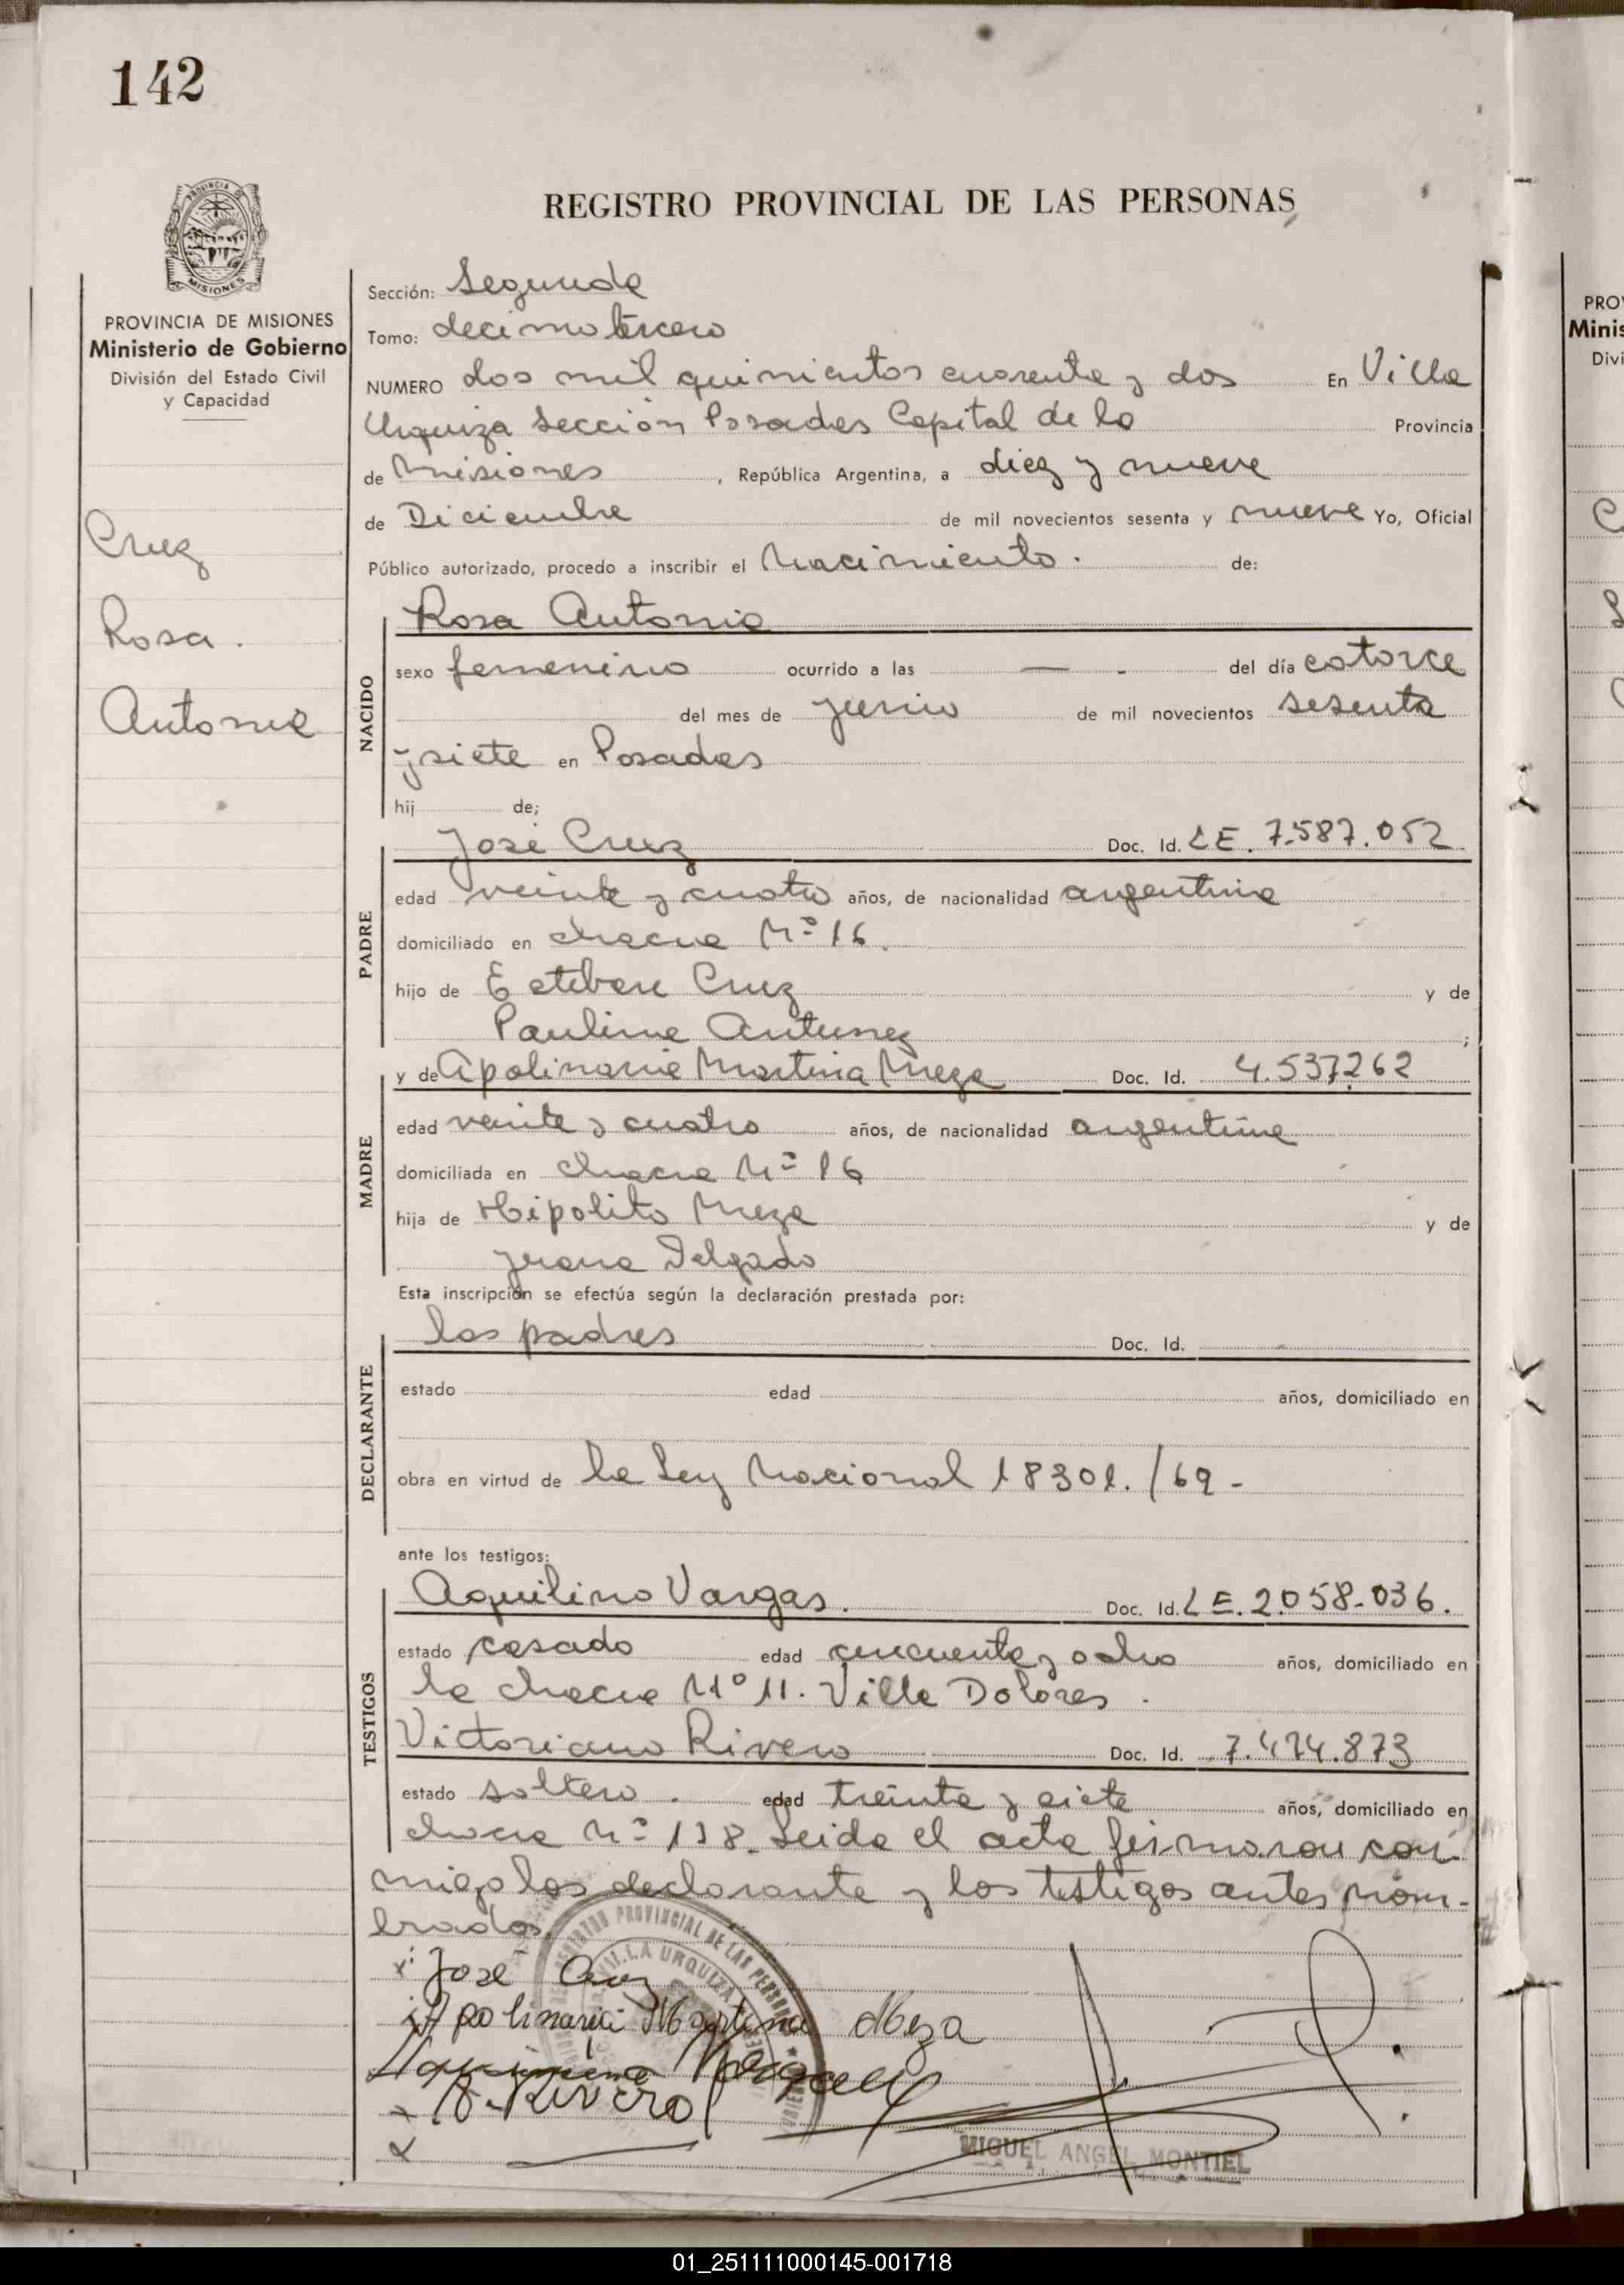 142
PROVINCIA DE
MISIONES
REGISTRO PROVINCIAL DE LAS PERSONAS
PROVINCIA DE MISIONES
Ministerio de Gobierno
División del Estado Civil
y Capacidad
Cruz
Rosa.
Antonia
Sección: Segunda
Tomo: decimo tercero
NUMERO dos mil quinientos cuarenta y dos En Villa
Urquiza Sección Posadas Capital de la Provincia
de Misiones, República Argentina, a diez y nueve
de Diciembre de mil novecientos sesenta y nueve Yo, Oficial
Público autorizado, procedo a inscribir el Nacimiento. de:
NACIDO
Rosa Antonia
sexo femenino ocurrido a las — - del día catorce
del mes de junio de mil novecientos sesenta
y siete en Posadas
hij de;
PADRE
José Cruz Doc. Id. L.E. 7.587.052
edad veinte y cuatro años, de nacionalidad argentina
domiciliado en chacra Nº 16.
hijo de Esteban Cruz y de
Paulina Antunez;
MADRE
y de Apolinaria Martina Meza Doc. Id. 4.537.262
edad veinte y cuatro años, de nacionalidad argentina
domiciliada en chacra Nº 16
hija de Hipolito Meza y de
Juana Delgado
Esta inscripción se efectúa según la declaración prestada por:
DECLARANTE
los padres Doc. Id. -
estado edad años, domiciliado en
obra en virtud de la Ley Nacional 18301./69-
ante los testigos:
TESTIGOS
Aquilino Vargas. Doc. Id. L.E. 2.058.036.
estado casado edad cincuenta y ocho años, domiciliado en
la chacra Nº 11. Villa Dolores.
Victoriano Rivero Doc. Id. 7.474.873
estado soltero. edad treinta y siete años, domiciliado en
chacra Nº 138. Leida el acta firmaron con-
migo los declarante y los testigos antes nom-
brados.
REGISTRO PROVINCIAL DE LAS PERSONAS
VILLA URQUIZA
x Jose Cruz
Apolinaria Martina Meza
Aquilino Vargas
x V. Rivero
x
MIGUEL ANGEL MONTIEL
PRO
Minis
Divi
01_251111000145-001718